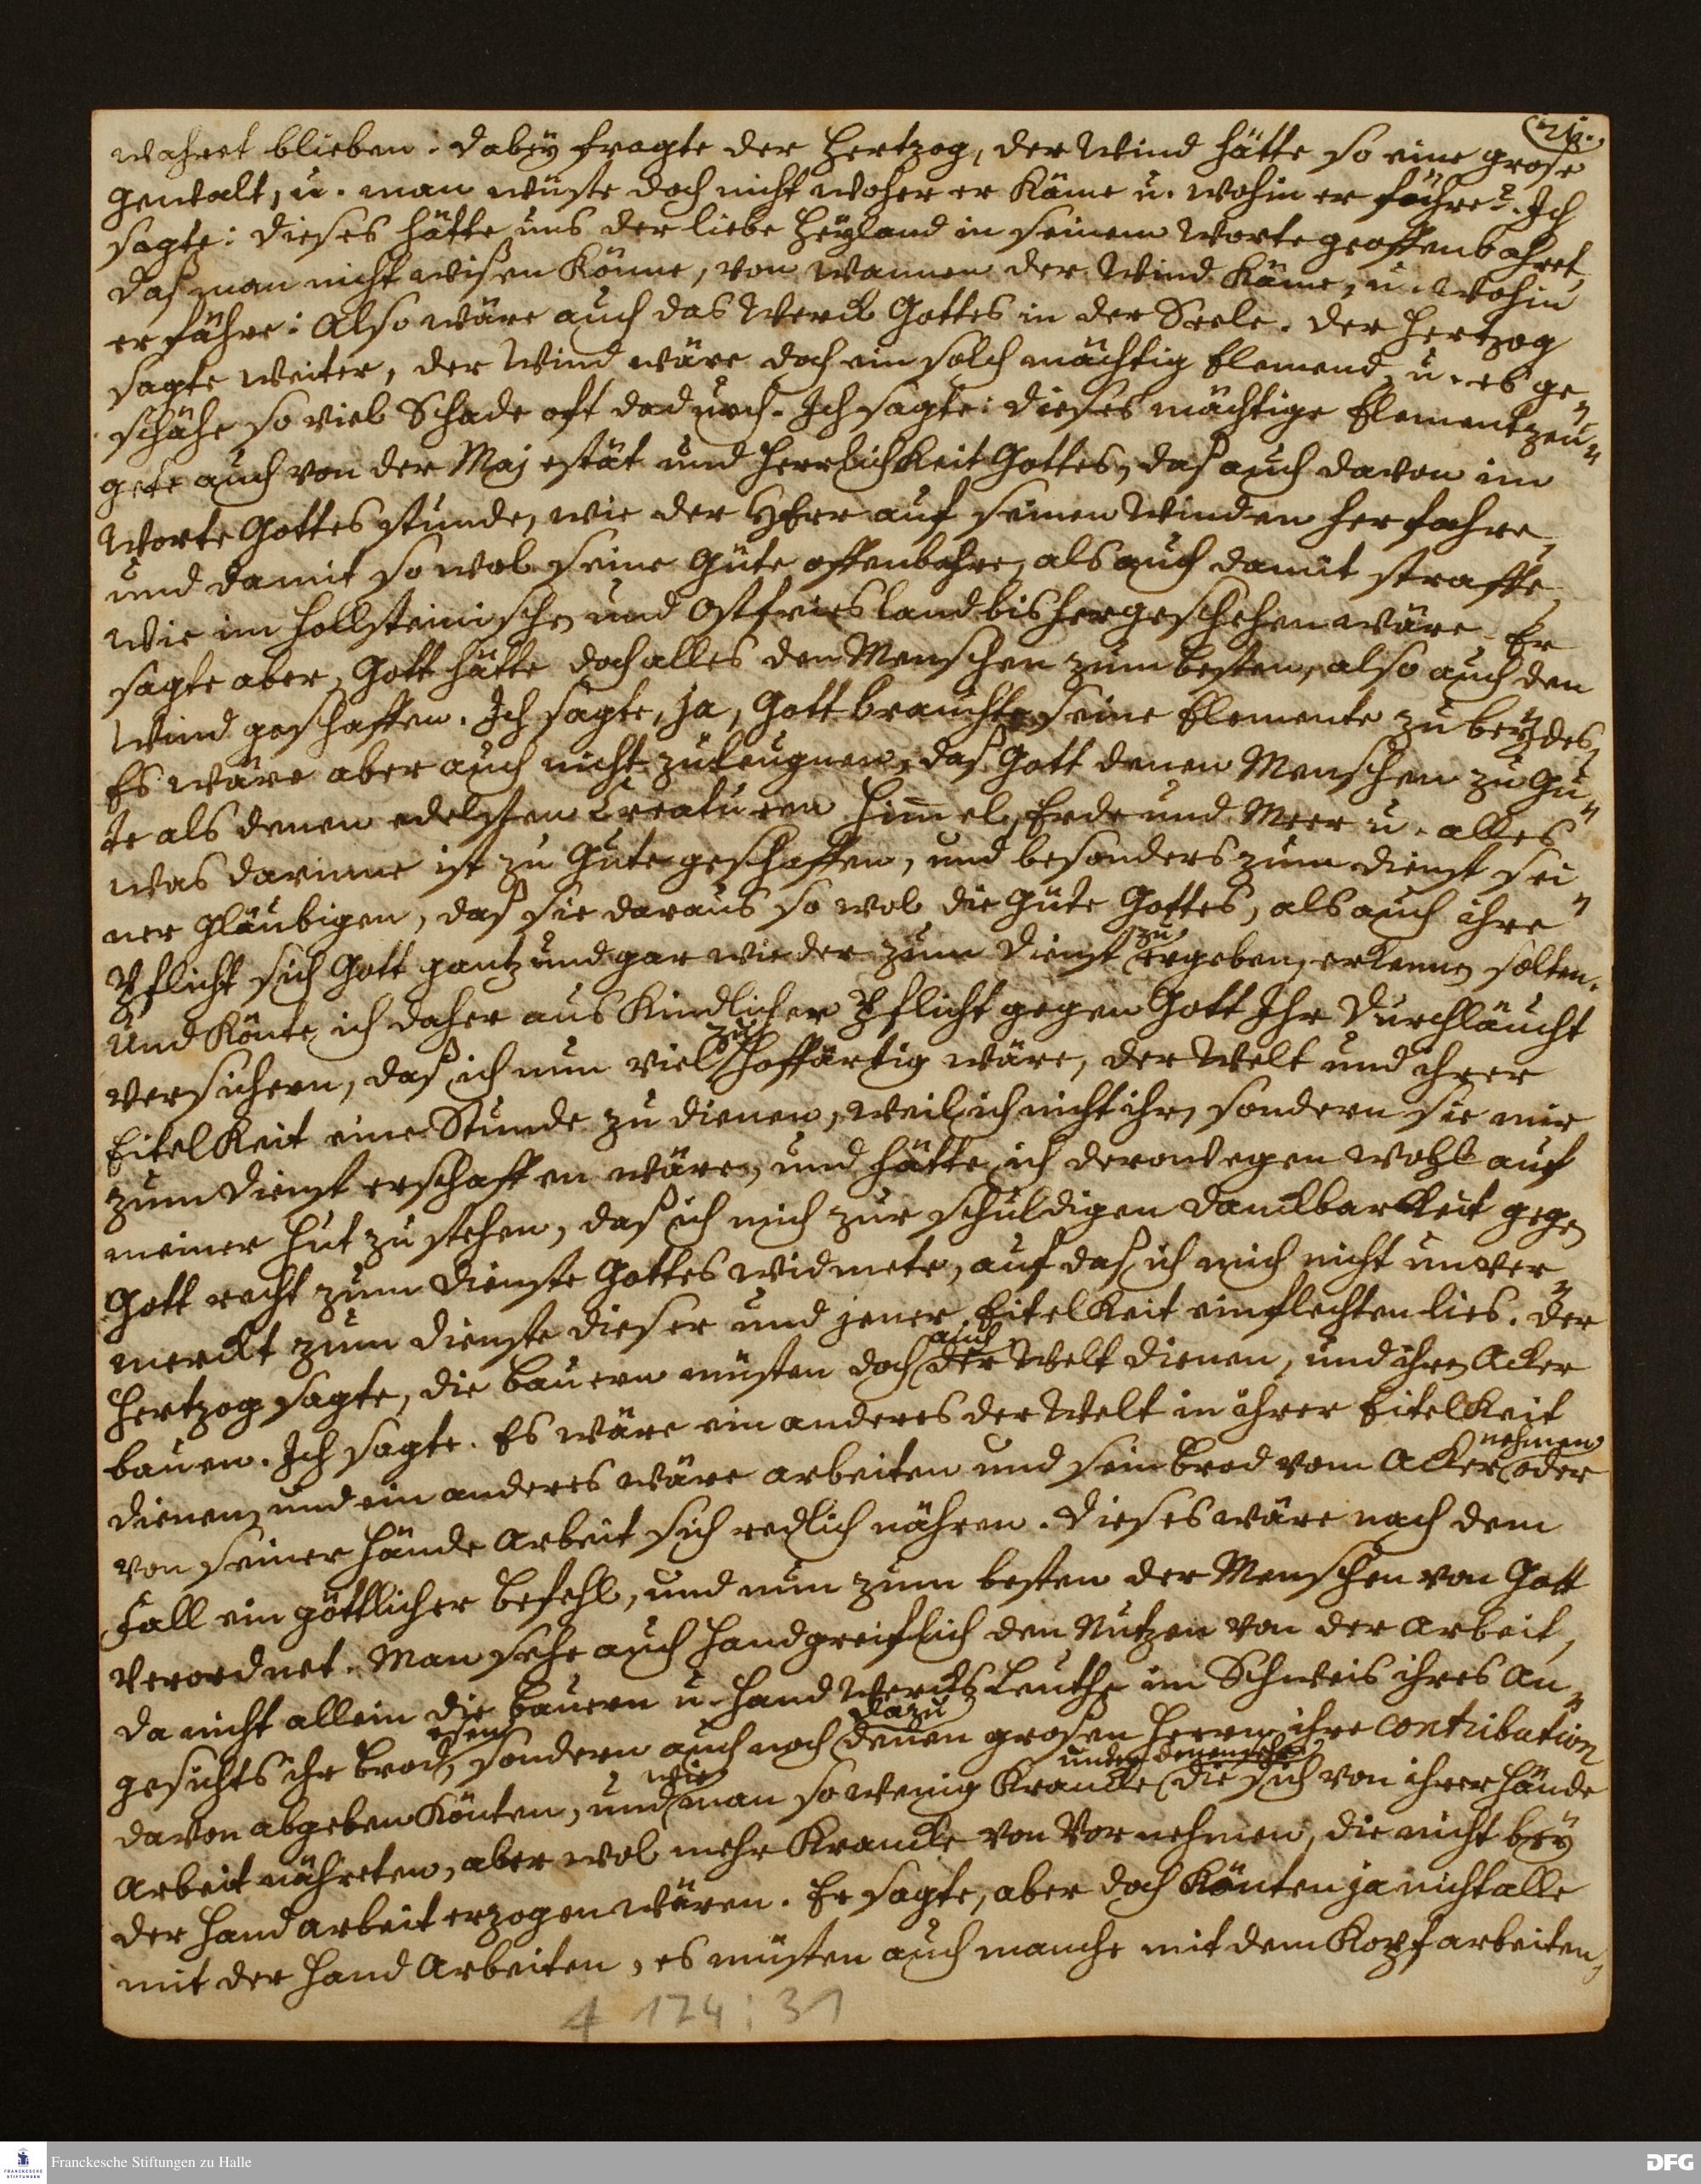 wahret blieben: dabey fragte der Hertzog, der Wind hätte so eine grose
Gewalt, u. man wüste doch nicht woher er käme u. wohin er führe? Ich
sagte: dieses hätte uns der liebe Heyland in seinem Worte geoffenbahret,
daß man nicht wißen könne, von wannen der Wind käme, u. wohin
er führe: Also wäre auch das Werck Gottes in der Seele. Der Hertzog
sagte weiter, der Wind wäre doch ein solch mächtig Elemend, u. es ge-
schähe so viel Schade oft dadurch. Ich sagte: dieses mächtige Element zeu-
gete auch von der Majestät und Herrlichkeit Gottes, daß auch davon im
Worte Gottes stunde, wie der HErr auf seinen Winden her fahre,
und damit so wol seine Güte offenbahre, als auch damit straffe,
wie im Hollsteinischen und Ostfriesland bisher geschehen wäre. Er
sagte aber, Gott hätte doch alles den Menschen zum besten, also auch den
Wind geschaffen. Ich sagte, ja, Gott brauchte seine Elemente zu beydes,
Es wäre aber auch nicht zu leugnen, daß Gott denen Menschen zu Gu-
te als denen edelsten Creaturen Him̄el, Erde und Meer u. alles
was darinne ist zu Gute geschaffen, und besonders zum Dienst sei-
ner Gläubigen, daß sie daraus so wol die Güte Gottes, als auch ihre
zu
Pflicht sich Gott gantz und gar wieder zum Dienst ergeben, erkennen solten.
Und könte ich daher aus kindlicher Pflicht gegen Gott Ihr Durchläucht
zu
versichern, daß ich nun viel hoffärtig wäre, der Welt und ihrer
Eitelkeit eine Stunde zu dienen, weil ich nicht ihr, sondern sie mir
zum Dienst erschaffen wäre, und hätte ich derowegen wohl auf
meiner Hut zu stehen, daß ich mich zur schuldigen Danckbarkeit gegen
Gott recht zum Dienste Gottes widmete, auf daß ich mich nicht unver-
merckt zum Dienste dieser und jener Eitelkeit einflechten lies. Der
auch
Hertzog sagte, die Bauern müsten doch der Welt dienen, und ihren Acker
bauen. Ich sagte. Es wäre ein anderes der Welt in ihrer Eitelkeit
nehmen
dienen, und ein anderes wäre arbeiten und sein Brod vom Acker oder
von seiner Hände Arbeit sich redlich nähren. Dieses wäre nach dem
Fall ein göttlicher Befehl, und nun zum besten der Menschen von Gott
verordnet. Man sehe auch handgreiflich den Nutzen von der Arbeit,
da nicht allein die Bauern u. Handwercks Leuthe im Schweis ihres An-
esen dazu
gesichts ihr Brod, sondern auch noch denen grosen Herren ihre contribution
wie unter denen sehe
davon abgeben könten, und man so wenig Krancke die sich von ihrer Hände
Arbeit nähreten, aber wol mehr Krancke von Vornehmen, die nicht bey
der Hand arbeit erzogen wären. Er sagte, aber doch könten ja nicht alle
mit der Hand Arbeiten, es müsten auch manche mit dem Kopf arbeiten,
4 124 : 31
Franckesche Stiftungen zu Halle
FRANCKESCHE STIFTUNGEN
DFG